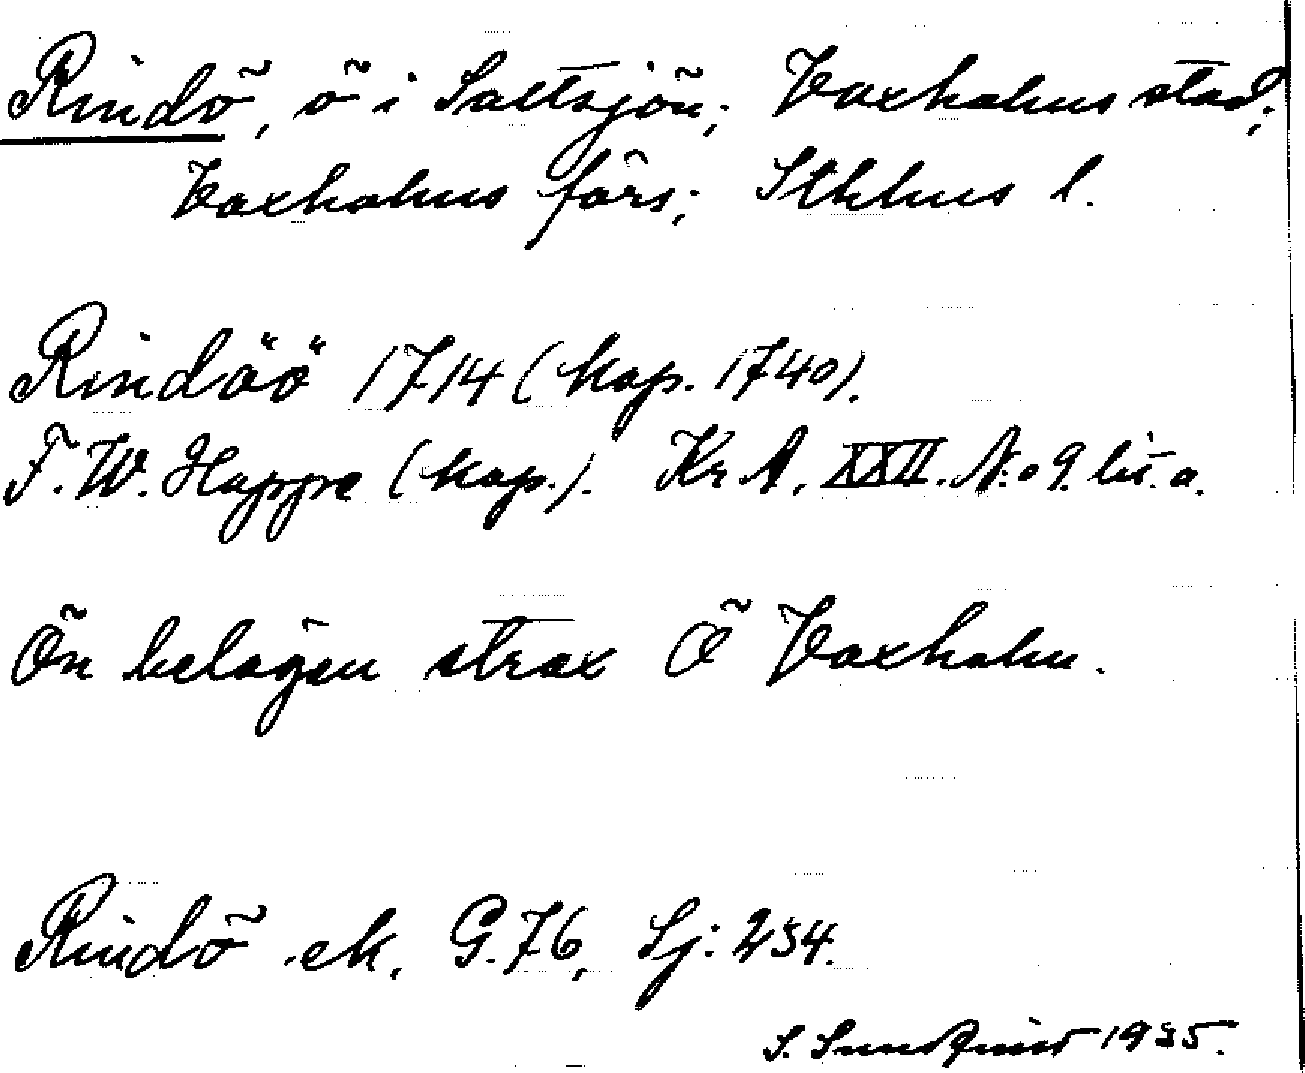 Rindö, ö i Saltsjön; Vaxholms stad;
Vaxholms förs; Sthlms l.
Rindöö 1714 (kop. 1740).
F. W. Hoppe (kop.). Kr A, XXII. N:o 9. lit. a.
Ön belägen strax Ö Vaxholm.
Rindö ek. G. 76, Sj: 234.
S. Sundqvist 1935.